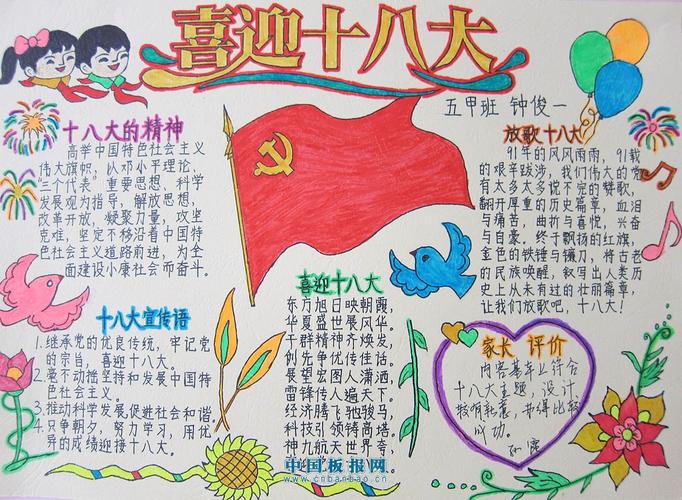 喜迎十八大
五甲班 钟俊一
十八大的精神
高举中国特色社会主义
伟大旗帜,以邓小平理论,
三个代表”重要思想、科学
发展观为指导,解放思想,
改革开放,凝聚力量,攻坚
克难,坚定不移沿着中国特
色社会主义道路前进,为全
面建设小康社会而奋斗。
放歌十八大
91年的风风雨雨,91载
的艰辛跋涉,我们伟大的党
有太多太多说不完的赞歌,
翻开厚重的历史篇章,血泪
与痛苦,曲折与喜悦,兴奋
与自豪。终于飘扬的红旗,
金色的铁锤与镰刀,将古老
的民族唤醒,叙写出人类历
史上从未有过的壮丽篇章,
让我们放歌吧,十八大!
十八大宣传语
1.继承党的优良传统,牢记党
的宗旨,喜迎十八大。
2.毫不动摇坚持和发展中国特
色社会主义。
3.推动科学发展,促进社会和谐
4.只争朝夕,努力学习,用优
异的成绩迎接十八大。
喜迎十八大
东方旭日映朝霞,
华夏盛世展风华。
干群精神齐焕发,
创先争优传佳话。
展望宏图人潇洒,
雷锋传人遍天下。
经济腾飞驰骏马,
科技引领铸高塔。
神九航天世界夸,
家长 评价
内容基本上符合
十八大主题,设计
较有耗素,
成功。
中国板报网
www.cnbanbao.cn